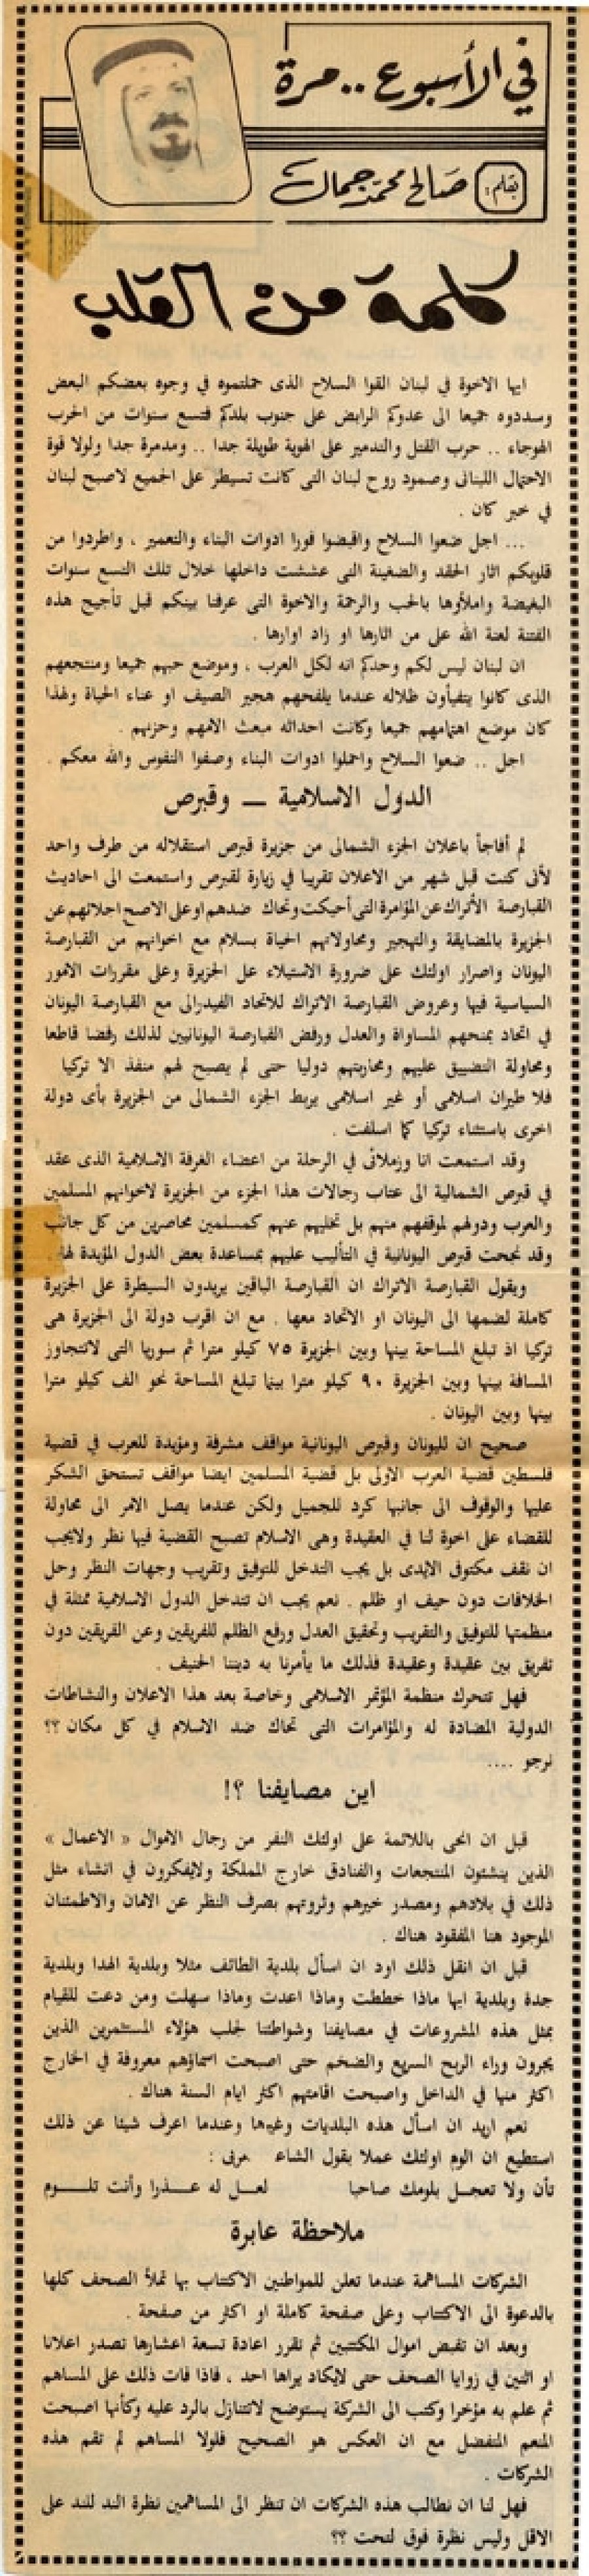 في الأسبوع .. مرة
بقلم : صالح محمد جمال
كلمة من القلب
ايها الاخوة في لبنان القوا السلاح الذى حملتموه في وجوه بعضكم البعض
وسددوه جميعا الى عدوكم الرابض على جنوب بلدكم فتسع سنوات من الحرب
الهوجاء .. حرب القتل والتدمير على الهوية طويلة جدا .. ومدمرة جدا ولولا قوة
الاحتمال اللبنانى وصمود روح لبنان التى كانت تسيطر على الجميع لاصبح لبنان
في خبر كان .
... اجل ضعوا السلاح واقبضوا فورا ادوات البناء والتعمير ، واطردوا من
قلوبكم اثار الحقد والضغينة التى عششت داخلها خلال تلك التسع سنوات
البغيضة واملأوها بالحب والرحمة والاخوة التى عرفنا بينكم قبل تأجيج هذه
الفتنة لعنة الله على من اثارها او زاد اوارها .
ان لبنان ليس لكم وحدكم انه لكل العرب ، وموضع حبهم جميعا ومنتجعهم
الذى كانوا يتفيأون ظلاله عندما يلفحهم هجير الصيف او عناء الحياة ولهذا
كان موضع اهتمامهم جميعا وكانت احداثه مبعث الامهم وحزنهم .
اجل .. ضعوا السلاح واحملوا ادوات البناء وصفوا النفوس والله معكم .
الدول الاسلامية — وقبرص
لم أفاجأ باعلان الجزء الشمالى من جزيرة قبرص استقلاله من طرف واحد
لأنى كنت قبل شهر من الاعلان تقريبا في زيارة لقبرص واستمعت الى احاديث
القبارصة الأتراك عن المؤامرة التى أحيكت وتحاك ضدهم او على الاصح اجلائهم عن
الجزيرة بالمضايقة والتهجير ومحاولاتهم الحياة بسلام مع اخوانهم من القبارصة
اليونان واصرار اولئك على ضرورة الاستيلاء على الجزيرة وعلى مقررات الامور
السياسية فيها وعروض القبارصة الاتراك للاتحاد الفيدرالى مع القبارصة اليونان
في اتحاد يمنحهم المساواة والعدل ورفض القبارصة اليونانيين لذلك رفضا قاطعا
ومحاولة التضييق عليهم ومحاربتهم دوليا حتى لم يصبح لهم منفذ الا تركيا
فلا طيران اسلامى أو غير اسلامى يربط الجزء الشمالى من الجزيرة بأى دولة
اخرى باستثناء تركيا كما اسلفت .
وقد استمعت انا وزملائى في الرحلة من اعضاء الغرفة الاسلامية الذى عقد
في قبرص الشمالية الى عتاب رجالات هذا الجزء من الجزيرة لاخوانهم المسلمين
والعرب ودولهم لموقفهم منهم بل تخليهم عنهم كمسلمين محاصرين من كل جانب
وقد نجحت قبرص اليونانية في التأليب عليهم بمساعدة بعض الدول المؤيدة لها .
ويقول القبارصة الاتراك ان القبارصة الباقين يريدون السيطرة على الجزيرة
كاملة لضمها الى اليونان او الاتحاد معها . مع ان اقرب دولة الى الجزيرة هى
تركيا اذ تبلغ المساحة بينها وبين الجزيرة ٧٥ كيلو مترا ثم سوريا التى لاتتجاوز
المسافة بينها وبين الجزيرة ٩٠ كيلو مترا بينما تبلغ المساحة نحو الف كيلو مترا
بينها وبين اليونان .
صحيح ان لليونان وقبرص اليونانية مواقف مشرفة ومؤيدة للعرب في قضية
فلسطين قضية العرب الاولى بل قضية المسلمين ايضا مواقف تستحق الشكر
عليها والوقوف الى جانبها كرد للجميل ولكن عندما يصل الامر الى محاولة
للقضاء على اخوة لنا في العقيدة وهى الاسلام تصبح القضية فيها نظر ولايجب
ان نقف مكتوفى الايدى بل يجب التدخل للتوفيق وتقريب وجهات النظر وحل
الخلافات دون حيف او ظلم . نعم يجب ان تتدخل الدول الاسلامية ممثلة في
منظمتها للتوفيق والتقريب وتحقيق العدل ورفع الظلم للفريقين وعن الفريقين دون
تفريق بين عقيدة وعقيدة فذلك ما يأمرنا به ديننا الحنيف .
فهل تتحرك منظمة المؤتمر الاسلامى وخاصة بعد هذا الاعلان والنشاطات
الدولية المضادة له والمؤامرات التى تحاك ضد الاسلام في كل مكان ؟؟
نرجو ....
اين مصايفنا ؟!
قبل ان انحى باللائمة على اولئك النفر من رجال الاموال « الاعمال »
الذين ينشئون المنتجعات والفنادق خارج المملكة ولايفكرون في انشاء مثل
ذلك في بلادهم ومصدر خيرهم وثروتهم بصرف النظر عن الامان والاطمئنان
الموجود هنا المفقود هناك .
قبل ان انقل ذلك اود ان اسأل بلدية الطائف مثلا وبلدية الهدا وبلدية
جدة وبلدية ابها ماذا خططت وماذا اعدت وماذا سهلت ومن دعت للقيام
بمثل هذه المشروعات في مصايفنا وشواطئنا لجلب هؤلاء المستثمرين الذين
يجرون وراء الربح السريع والضخم حتى اصبحت اسماؤهم معروفة في الخارج
اكثر منها في الداخل واصبحت اقامتهم اكثر ايام السنة هناك .
نعم اريد ان اسأل هذه البلديات وغيرها وعندما اعرف شيئا عن ذلك
استطيع ان الوم اولئك عملا بقول الشاعر :
تأن ولا تعجـل بلومك صاحبا لعـل له عـذرا وأنت تلـوم
ملاحظة عابرة
الشركات المساهمة عندما تعلن للمواطنين الاكتتاب بها تملأ الصحف كلها
بالدعوة الى الاكتتاب وعلى صفحة كاملة او اكثر من صفحة .
وبعد ان تقبض اموال المكتتبين ثم تقرر اعادة تسعة اعشارها تصدر اعلانا
او اثنين في زوايا الصحف حتى لايكاد يراها احد ، فاذا فات ذلك على المساهم
ثم علم به مؤخرا وكتب الى الشركة يستوضح لاتتنازل بالرد عليه وكأنها اصبحت
المنعم المتفضل مع ان العكس هو الصحيح فلولا المساهم لم تقم هذه
الشركات .
فهل لنا ان نطالب هذه الشركات ان تنظر الى المساهمين نظرة الند للند على
الاقل وليس نظرة فوق لتحت ؟؟